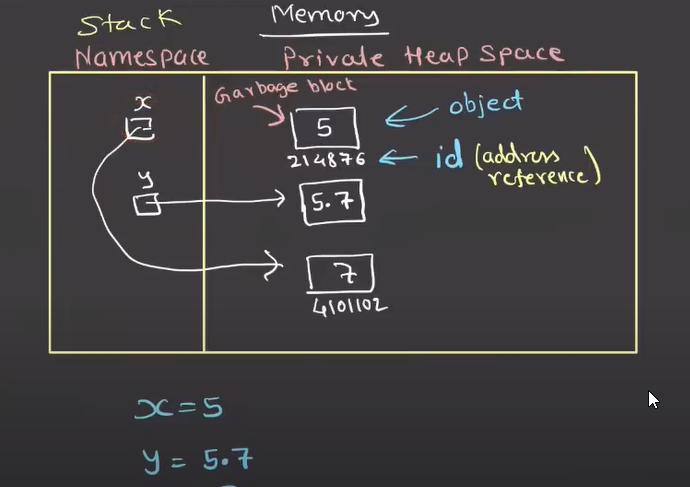 Stack
Memory
Namespace
Private Heap Space
Garbage block
x
5
object
214876
id (address reference)
y
5.7
7
4101102
x = 5
y = 5.7